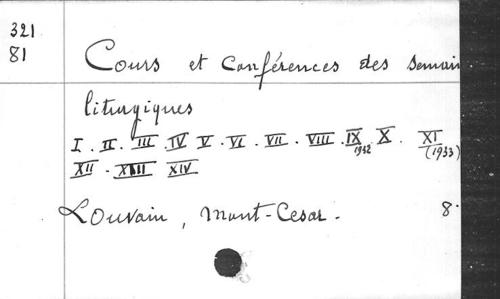 321
81
Cours et Conférences des Semain
liturgiques
I . II . III . IV V . VI . VII . VIII . IX . X . XI
1932 (1933)
XII . XIII XIV
Louvain , Mont-Cesar . 8.